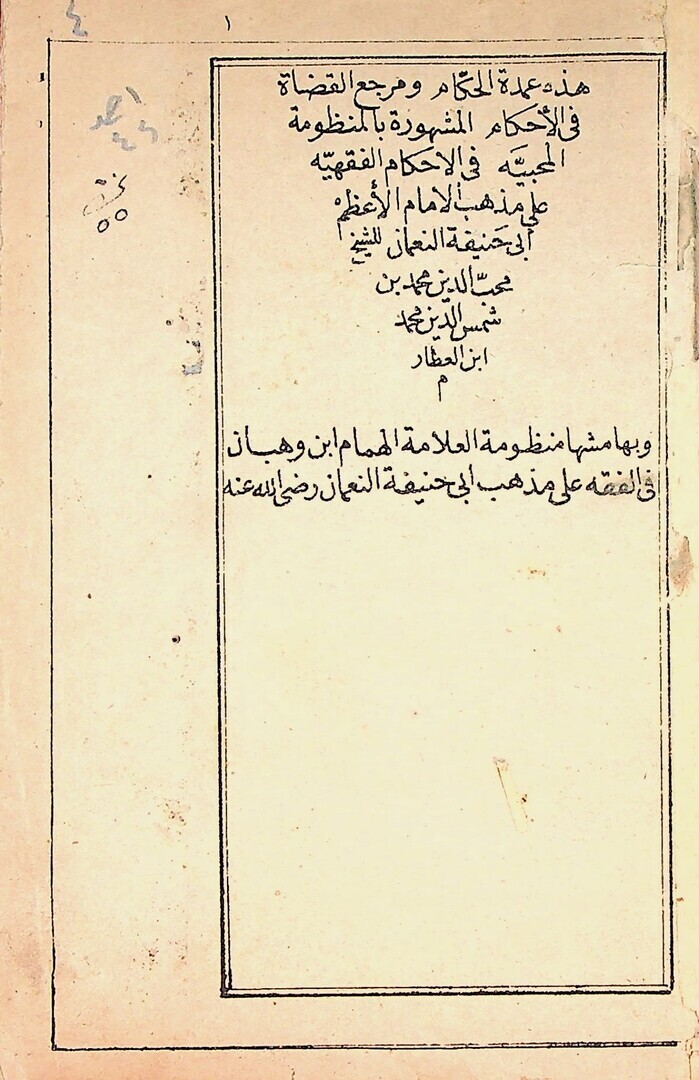 ١
٤
هذه عمدة الحكام ومرجع القضاة
فى الأحكام المشهورة بالمنظومة
المحبيَّه فى الاحكام الفقهيّه
على مذهب الامام الأعظم
أبى حَنيفة النعمان للشيخ
محبّ الدين محمد بن
شمس الدّين محمد
ابن العطار
م
وبهامشها منظومة العلامة الهمام ابن وهبان
فى الفقه على مذهب أبى حنيفة النعمان رضى الله عنه